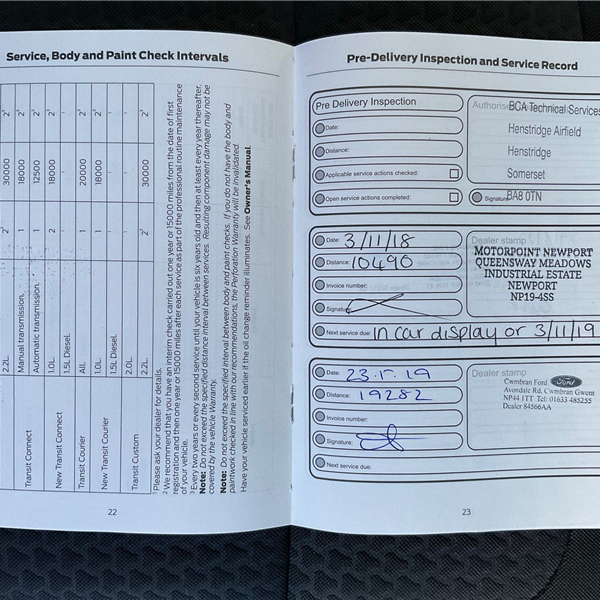 Service, Body and Paint Check Intervals
2.2L. 2² 30000 2³
Transit Connect
Manual transmission. 1 18000 2³
Automatic transmission. 1 12500 2³
New Transit Connect
1.0L. 2 18000 2³
1.5L Diesel. - - -
Transit Courier
All. 1 20000 2³
New Transit Courier
1.0L. 1 18000 2³
1.5L Diesel. - - -
Transit Custom
2.0L. - - -
2.2L. 2² 30000 2³
¹ Please ask your dealer for details.
² We recommend that you have an interim check carried out one year or 15000 miles from the date of first
registration and then one year or 15000 miles after each service as part of the professional routine maintenance
of your vehicle.
³ Every two years or every second service until your vehicle is six years old and then at least every year thereafter.
Note: Do not exceed the specified distance interval between services. Resulting component damage may not be
covered by the vehicle Warranty.
Note: Do not exceed the specified interval between body and paint checks. If you do not have the body and
paintwork checked in line with our recommendations, the Perforation Warranty will be invalidated.
Have your vehicle serviced earlier if the oil change reminder illuminates. See Owner's Manual.
22
Pre-Delivery Inspection and Service Record
Pre Delivery Inspection
Date:
Distance:
Applicable service actions checked:
Open service actions completed:
BCA Technical Services
Henstridge Airfield
Henstridge
Somerset
BA8 0TN
Signature:
Date: 3/11/18
Distance: 10490
Invoice number:
Signature:
Next service due: in car display or 3/11/19
Dealer stamp
MOTORPOINT NEWPORT
QUEENSWAY MEADOWS
INDUSTRIAL ESTATE
NEWPORT
NP19-4SS
Date: 23.5.19
Distance: 19282
Invoice number:
Signature:
Next service due:
Dealer stamp
Cwmbran Ford Ford
Avondale Rd, Cwmbran Gwent
NP44 1TT Tel: 01633 485255
Dealer 84566AA
23